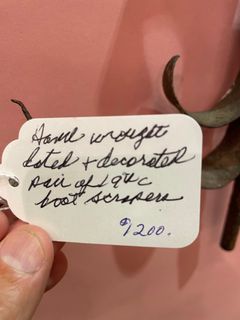 Hand wrought
dated + decorated
pair of 19thc
boot scrapers
$1200.